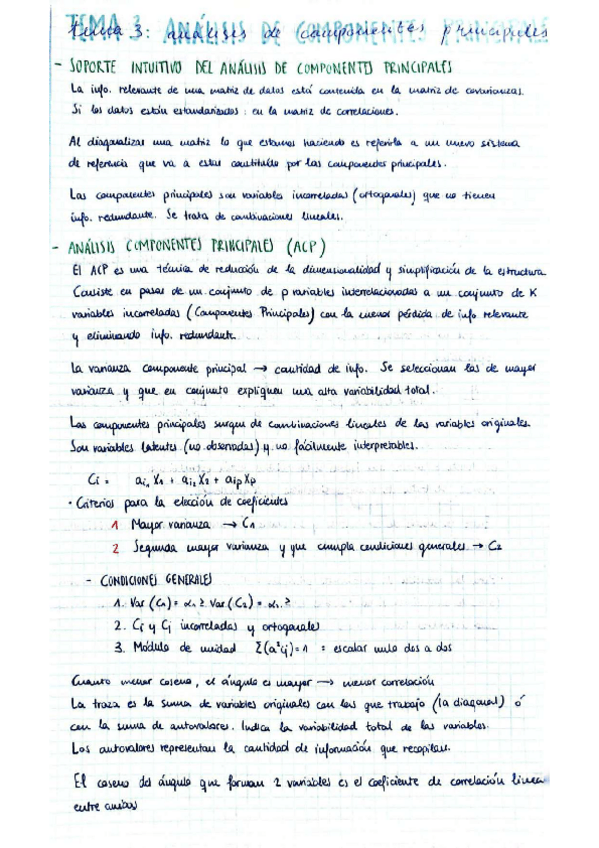 TEMA 3: ANÁLISIS DE COMPONENTES PRINCIPALES
Tema 3: análisis de componentes principales
- SOPORTE INTUITIVO DEL ANÁLISIS DE COMPONENTES PRINCIPALES
La info. relevante de una matriz de datos está contenida en la matriz de covarianzas.
Si los datos están estandarizados: en la matriz de correlaciones.
Al diagonalizar una matriz lo que estamos haciendo es referirla a un nuevo sistema
de referencia que va a estar constituido por las componentes principales.
Las componentes principales son variables incorreladas (ortogonales) que no tienen
info. redundante. Se trata de combinaciones lineales.
- ANÁLISIS COMPONENTES PRINCIPALES (ACP)
El ACP es una técnica de reducción de la dimensionalidad y simplificación de la estructura
Consiste en pasar de un conjunto de p variables interrelacionadas a un conjunto de K
variables incorreladas (Componentes Principales) con la menor pérdida de info relevante
y eliminando info. redundante.
La varianza componente principal → cantidad de info. Se seleccionan las de mayor
varianza y que en conjunto expliquen una alta variabilidad total.
Las componentes principales surgen de combinaciones lineales de las variables originales.
Son variables latentes (no observadas) y no fácilmente interpretables.
Ci = ai₁ X₁ + ai₂ X₂ + aip Xp
· Criterios para la elección de coeficientes
1 Mayor varianza → C1
2 Segunda mayor varianza y que cumpla condiciones generales → C2
- CONDICIONES GENERALES
1. Var (C₁) = α₁ ≥ Var (C₂) = α₂ ≥
2. Ci y Cj incorreladas y ortogonales
3. Módulo de unidad Σ(a²ij)=1 = escalar nulo dos a dos
Cuanto menor coseno, el ángulo es mayor → menor correlación
La traza es la suma de variables originales con las que trabajo (la diagonal) ó
con la suma de autovalores. Indica la variabilidad total de las variables.
Los autovalores representan la cantidad de información que recopilan.
El coseno del ángulo que forman 2 variables es el coeficiente de correlación linea
entre ambas